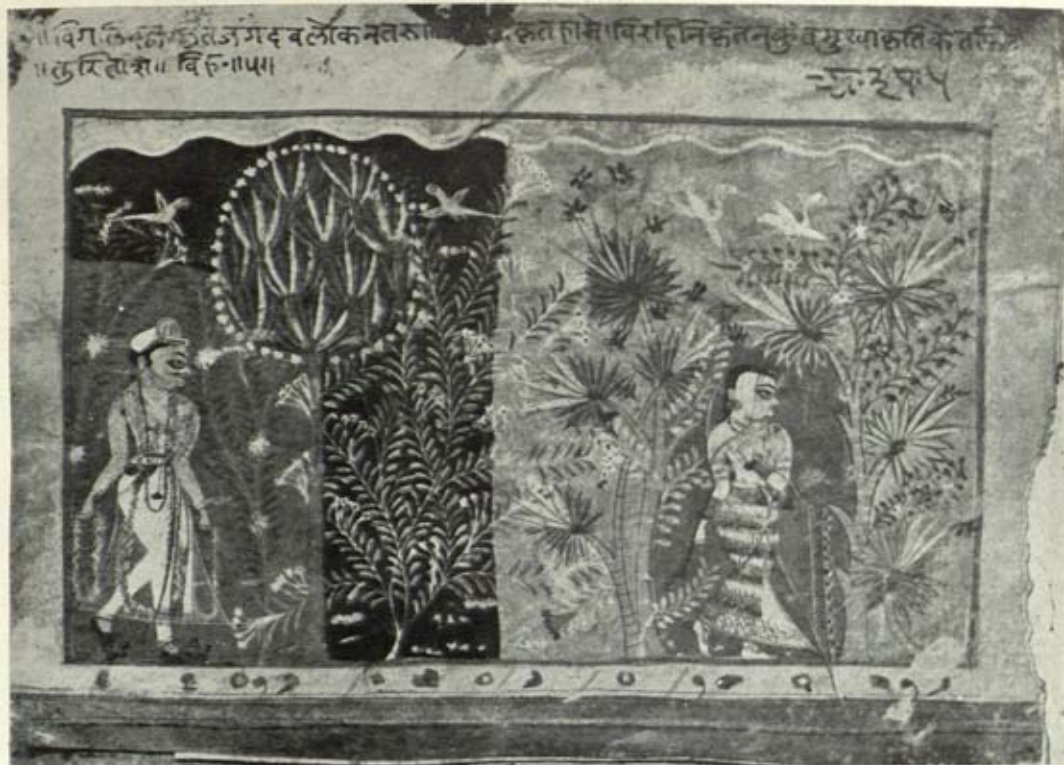 विगलितलज्जितजगदवलोकनतरु कृतहासे।विरहिनिकृतनकुंतमुखाकृतिकेतकि
॥तुरिताशे॥ विह॰॥५॥